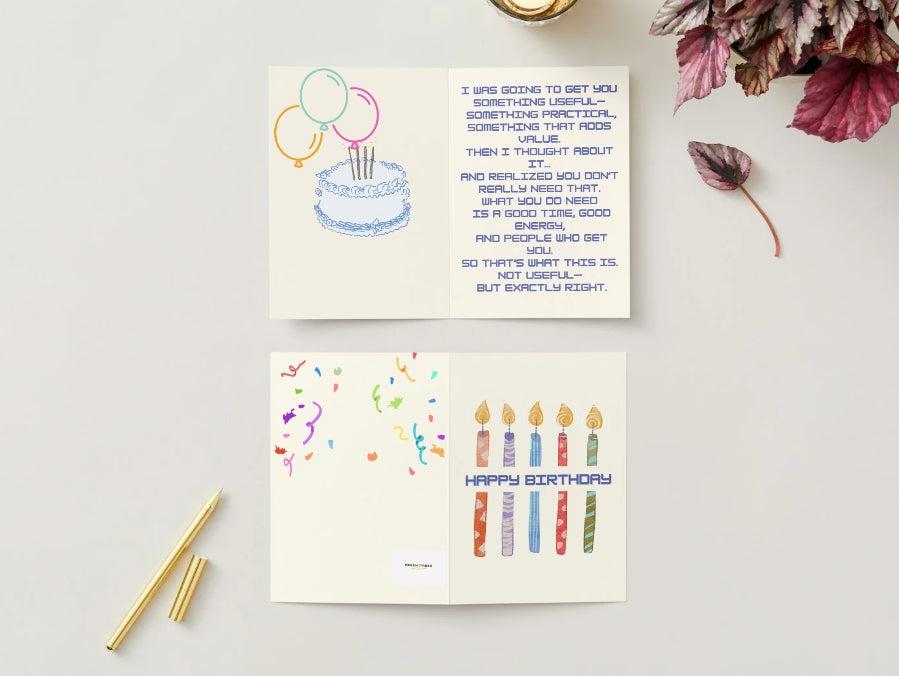 I WAS GOING TO GET YOU
SOMETHING USEFUL—
SOMETHING PRACTICAL,
SOMETHING THAT ADDS
VALUE.
THEN I THOUGHT ABOUT
IT...
AND REALIZED YOU DON'T
REALLY NEED THAT.
WHAT YOU DO NEED
IS A GOOD TIME, GOOD
ENERGY,
AND PEOPLE WHO GET
YOU.
SO THAT'S WHAT THIS IS.
NOT USEFUL—
BUT EXACTLY RIGHT.
HAPPY BIRTHDAY